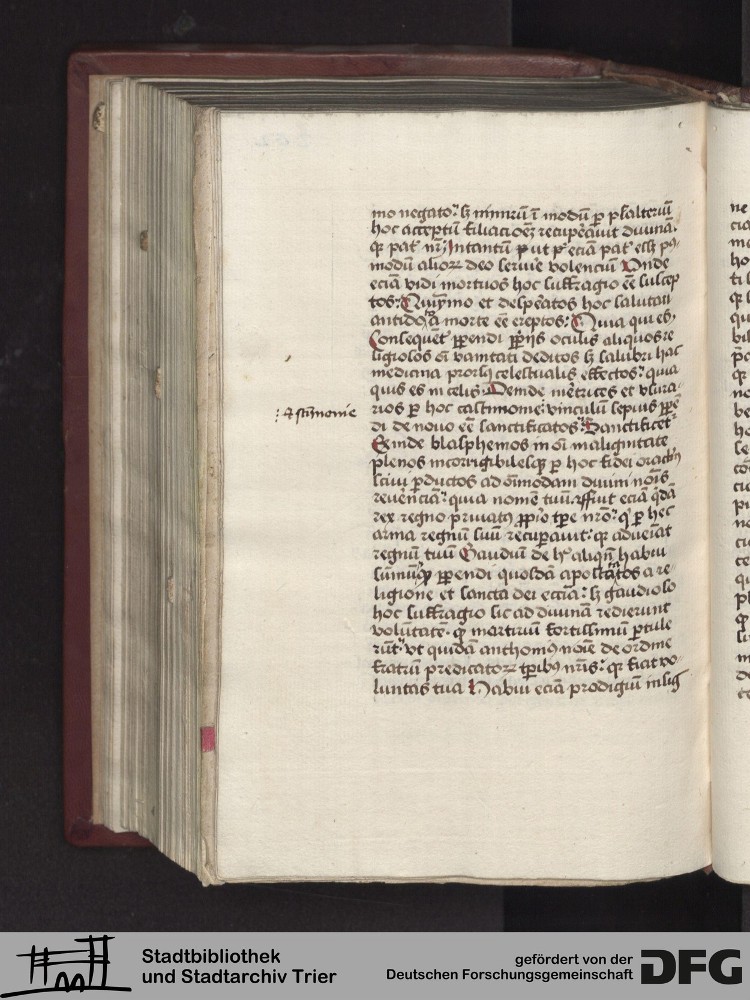 mo negato2: sʒ nimirū ī modū ꝑ psalteriū
hoc acceptū filiacioēʒ recuꝑauit diuinā.
qꝛ pat̄ nr̄. Intantū ut eciā pat̄ essʒ
modū alioꝝ deo seruire volenciū Vnde
eciā vidi mortuos hoc suffragio eē suscep
tos. Quiymo et desperatos hoc salutari
antidoto a morte eē ereptos: Quia qui es.
Consequēt̄ ꝑpendi ꝓprijs oculis aliquos re
ligiosos oī vanitati deditos sʒ salubri hac
medicina prorsꝫ celestialis effectos: quia
quis es in celis. Deinde meretrices et vsura
rios ꝑ hoc castimonie vinculū sepius ꝑpē
di de nouo eē sanctificatos: Sanctificet2
Exinde blasphemos in oī malignitate
plenos incorrigibilesqꝫ ꝑ hoc fidei
ꝑductos ad oīmodam diuini noīs
reuerenciā: quia nomē tuū. affuit eciā qdā
rex regno priuatꝰ ꝓprio tꝑe nr̄o: qꝛ ꝑ hec
arma regnū suū recuperauit: qꝛ adueniat
regnū tuū Gaudiū de hijs aliqn̄ habui
sūmū qꝛ ꝑpendi quosdā apostatos a re
ligione et sancta dei eccīa: sʒ gaudioso
hoc suffragio sic ad diuinā redierunt
voluntatē. qꝛ martiriū fortissimū ꝑtule
rūt: vt quidā anthoniꝰ noīe de ordine
fratrū predicatoꝝ tꝑibꝰ nr̄is: qꝛ fiat vo
luntas tua Habui eciā prodigiū insig
Stadtbibliothek
und Stadtarchiv Trier
gefördert von der
Deutschen Forschungsgemeinschaft
DFG